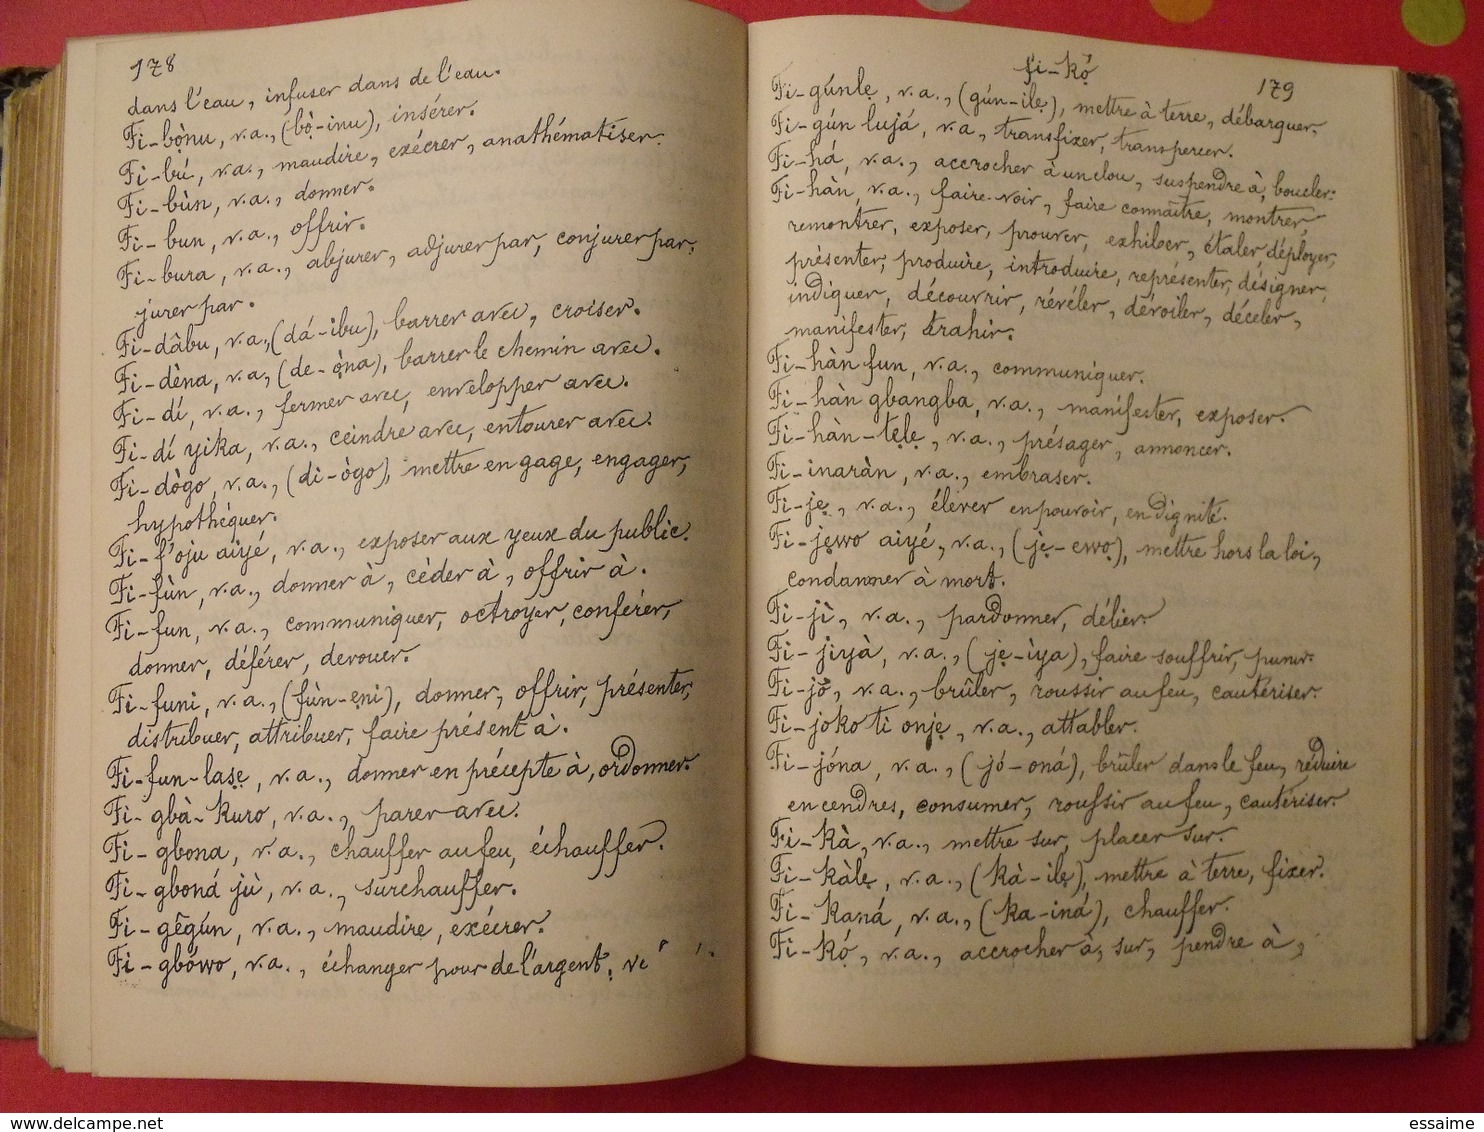 178
dans l'eau, infuser dans de l'eau.
Fi-bọ̀nu, v.a., (bọ̀-inu), insérer.
Fi-bú, v.a., maudire, exécrer, anathématiser.
Fi-bùn, v.a., donner.
Fi-bun, v.a., offrir.
Fi-bura, v.a., abjurer, adjurer par, conjurer par,
jurer par.
Fi-dâbu, v.a., (dá-ibu), barrer avec, croiser.
Fi-dèna, v.a., (de-ọ̀na), barrer le chemin avec.
Fi-dí, v.a., fermer avec, envelopper avec.
Fi-dí yika, v.a., ceindre avec, entourer avec.
Fi-dògo, v.a., (di-ògo), mettre en gage, engager,
hypothéquer.
Fi-f'oju aiyé, v.a., exposer aux yeux du public.
Fi-fùn, v.a., donner à, céder à, offrir à.
Fi-fun, v.a., communiquer, octroyer, conférer,
donner, déférer, devouer.
Fi-funi, v.a., (fùn-ẹni), donner, offrir, présenter,
distribuer, attribuer, faire présent à.
Fi-fun-laṣẹ, v.a., donner en précepte à, ordonner.
Fi-gbà-kuro, v.a., parer avec.
Fi-gbona, v.a., chauffer au feu, échauffer.
Fi-gboná jù, v.a., surchauffer.
Fi-gêgún, v.a., maudire, exécrer.
Fi-gbówo, v.a., échanger pour de l'argent,
fi-kọ́
179
Fi-gúnlẹ, v.a., (gún-ilẹ), mettre à terre, débarquer.
Fi-gún lujá, v.a., transfixer, transpercer.
Fi-há, v.a., accrocher à un clou, suspendre à, boucler.
Fi-hàn, v.a., faire voir, faire connaître, montrer,
remontrer, exposer, prouver, exhiber, étaler, déployer,
présenter, produire, introduire, représenter, désigner,
indiquer, découvrir, révéler, dévoiler, déceler,
manifester, trahir.
Fi-hàn fun, v.a., communiquer.
Fi-hàn gbangba, v.a., manifester, exposer.
Fi-hàn-tẹlẹ, v.a., présager, annoncer.
Fi-inaràn, v.a., embraser.
Fi-jẹ, v.a., élever en pouvoir, en dignité.
Fi-jẹwo aiyé, v.a., (jẹ̀-ewọ), mettre hors la loi,
condamner à mort.
Fi-jì, v.a., pardonner, délier.
Fi-jiyà, v.a., (jẹ-ìya), faire souffrir, punir.
Fi-jó, v.a., brûler, roussir au feu, cautériser.
Fi-joko ti onjẹ, v.a., attabler.
Fi-jóna, v.a., (jó-oná), brûler dans le feu, réduire
en cendres, consumer, roussir au feu, cautériser.
Fi-kà, v.a., mettre sur, placer sur.
Fi-kàlẹ, v.a., (kà-ilẹ), mettre à terre, fixer.
Fi-kaná, v.a., (ka-iná), chauffer.
Fi-kọ́, v.a., accrocher à, sur, pendre à,
essaime